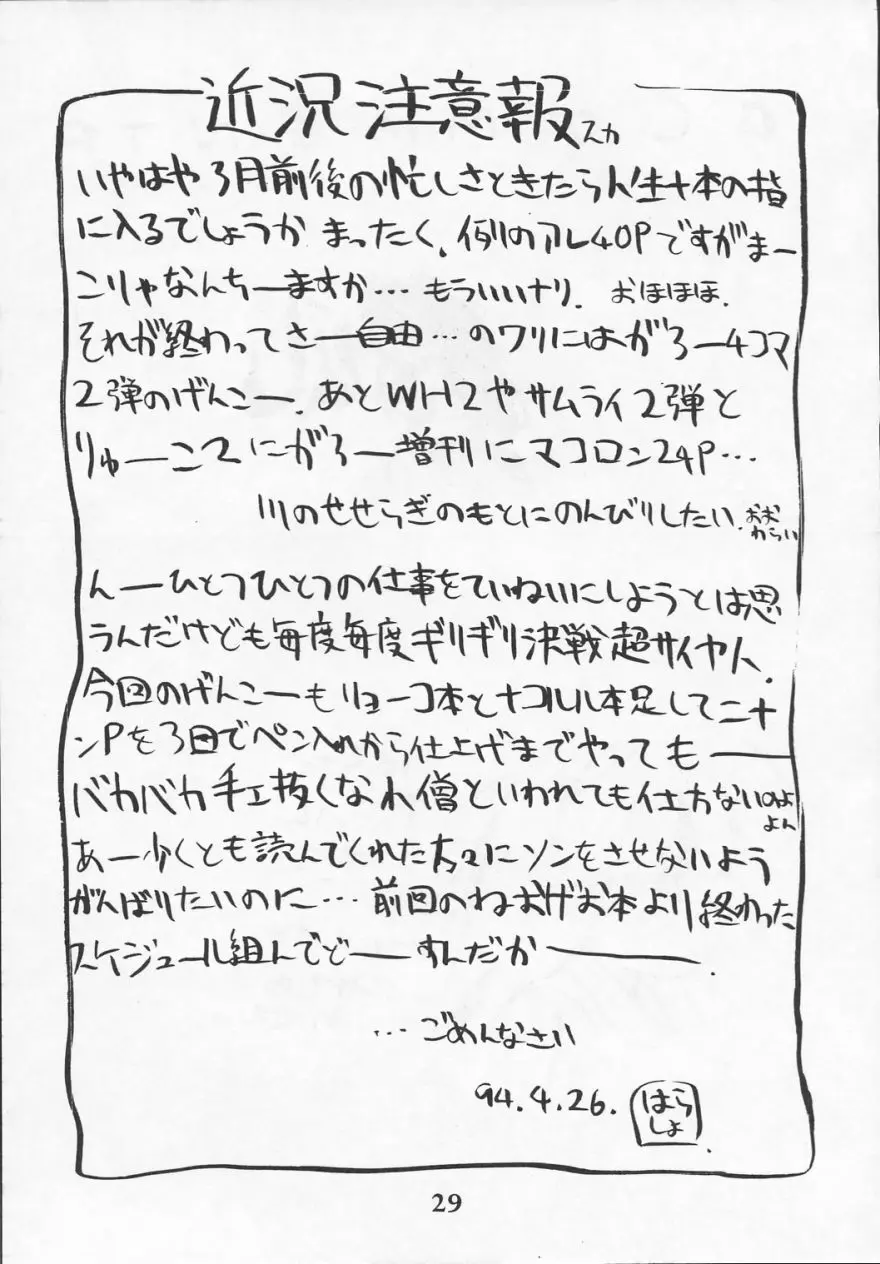 近況注意報スカ
いやはや3月前後の忙しさときたら人生十本の指
に入るでしょうか まったく、例のアレ40Pですがまー
こりゃなんちーますか… もういいナリ. おほほほ.
それが終わってさー自由…のワリにはがろー4コマ
2弾のげんこー、あとWH2やサムライ2弾と
りゅーこ2にがろー増刊にマコロン24P…
川のせせらぎのもとにのんびりしたい.おお
わらい
んーひとつひとつの仕事をていねいにしようとは思
うんだけども毎度毎度ギリギリ決戦超サイヤ人.
今回のげんこーもリョーコ本とナコルル本足して二十
ンPを3日でペン入れから仕上げまでやってもー
バカバカ手エ抜くなれ僧といわれても仕方ないのよ
よん
あー少くとも読んでくれた方々にソンをさせないよう
がんばりたいのに…前回のねおげお本より終わった
スケジュール組んでどーすんだかー.
…ごめんなさい
94.4.26. はら
しょ
29